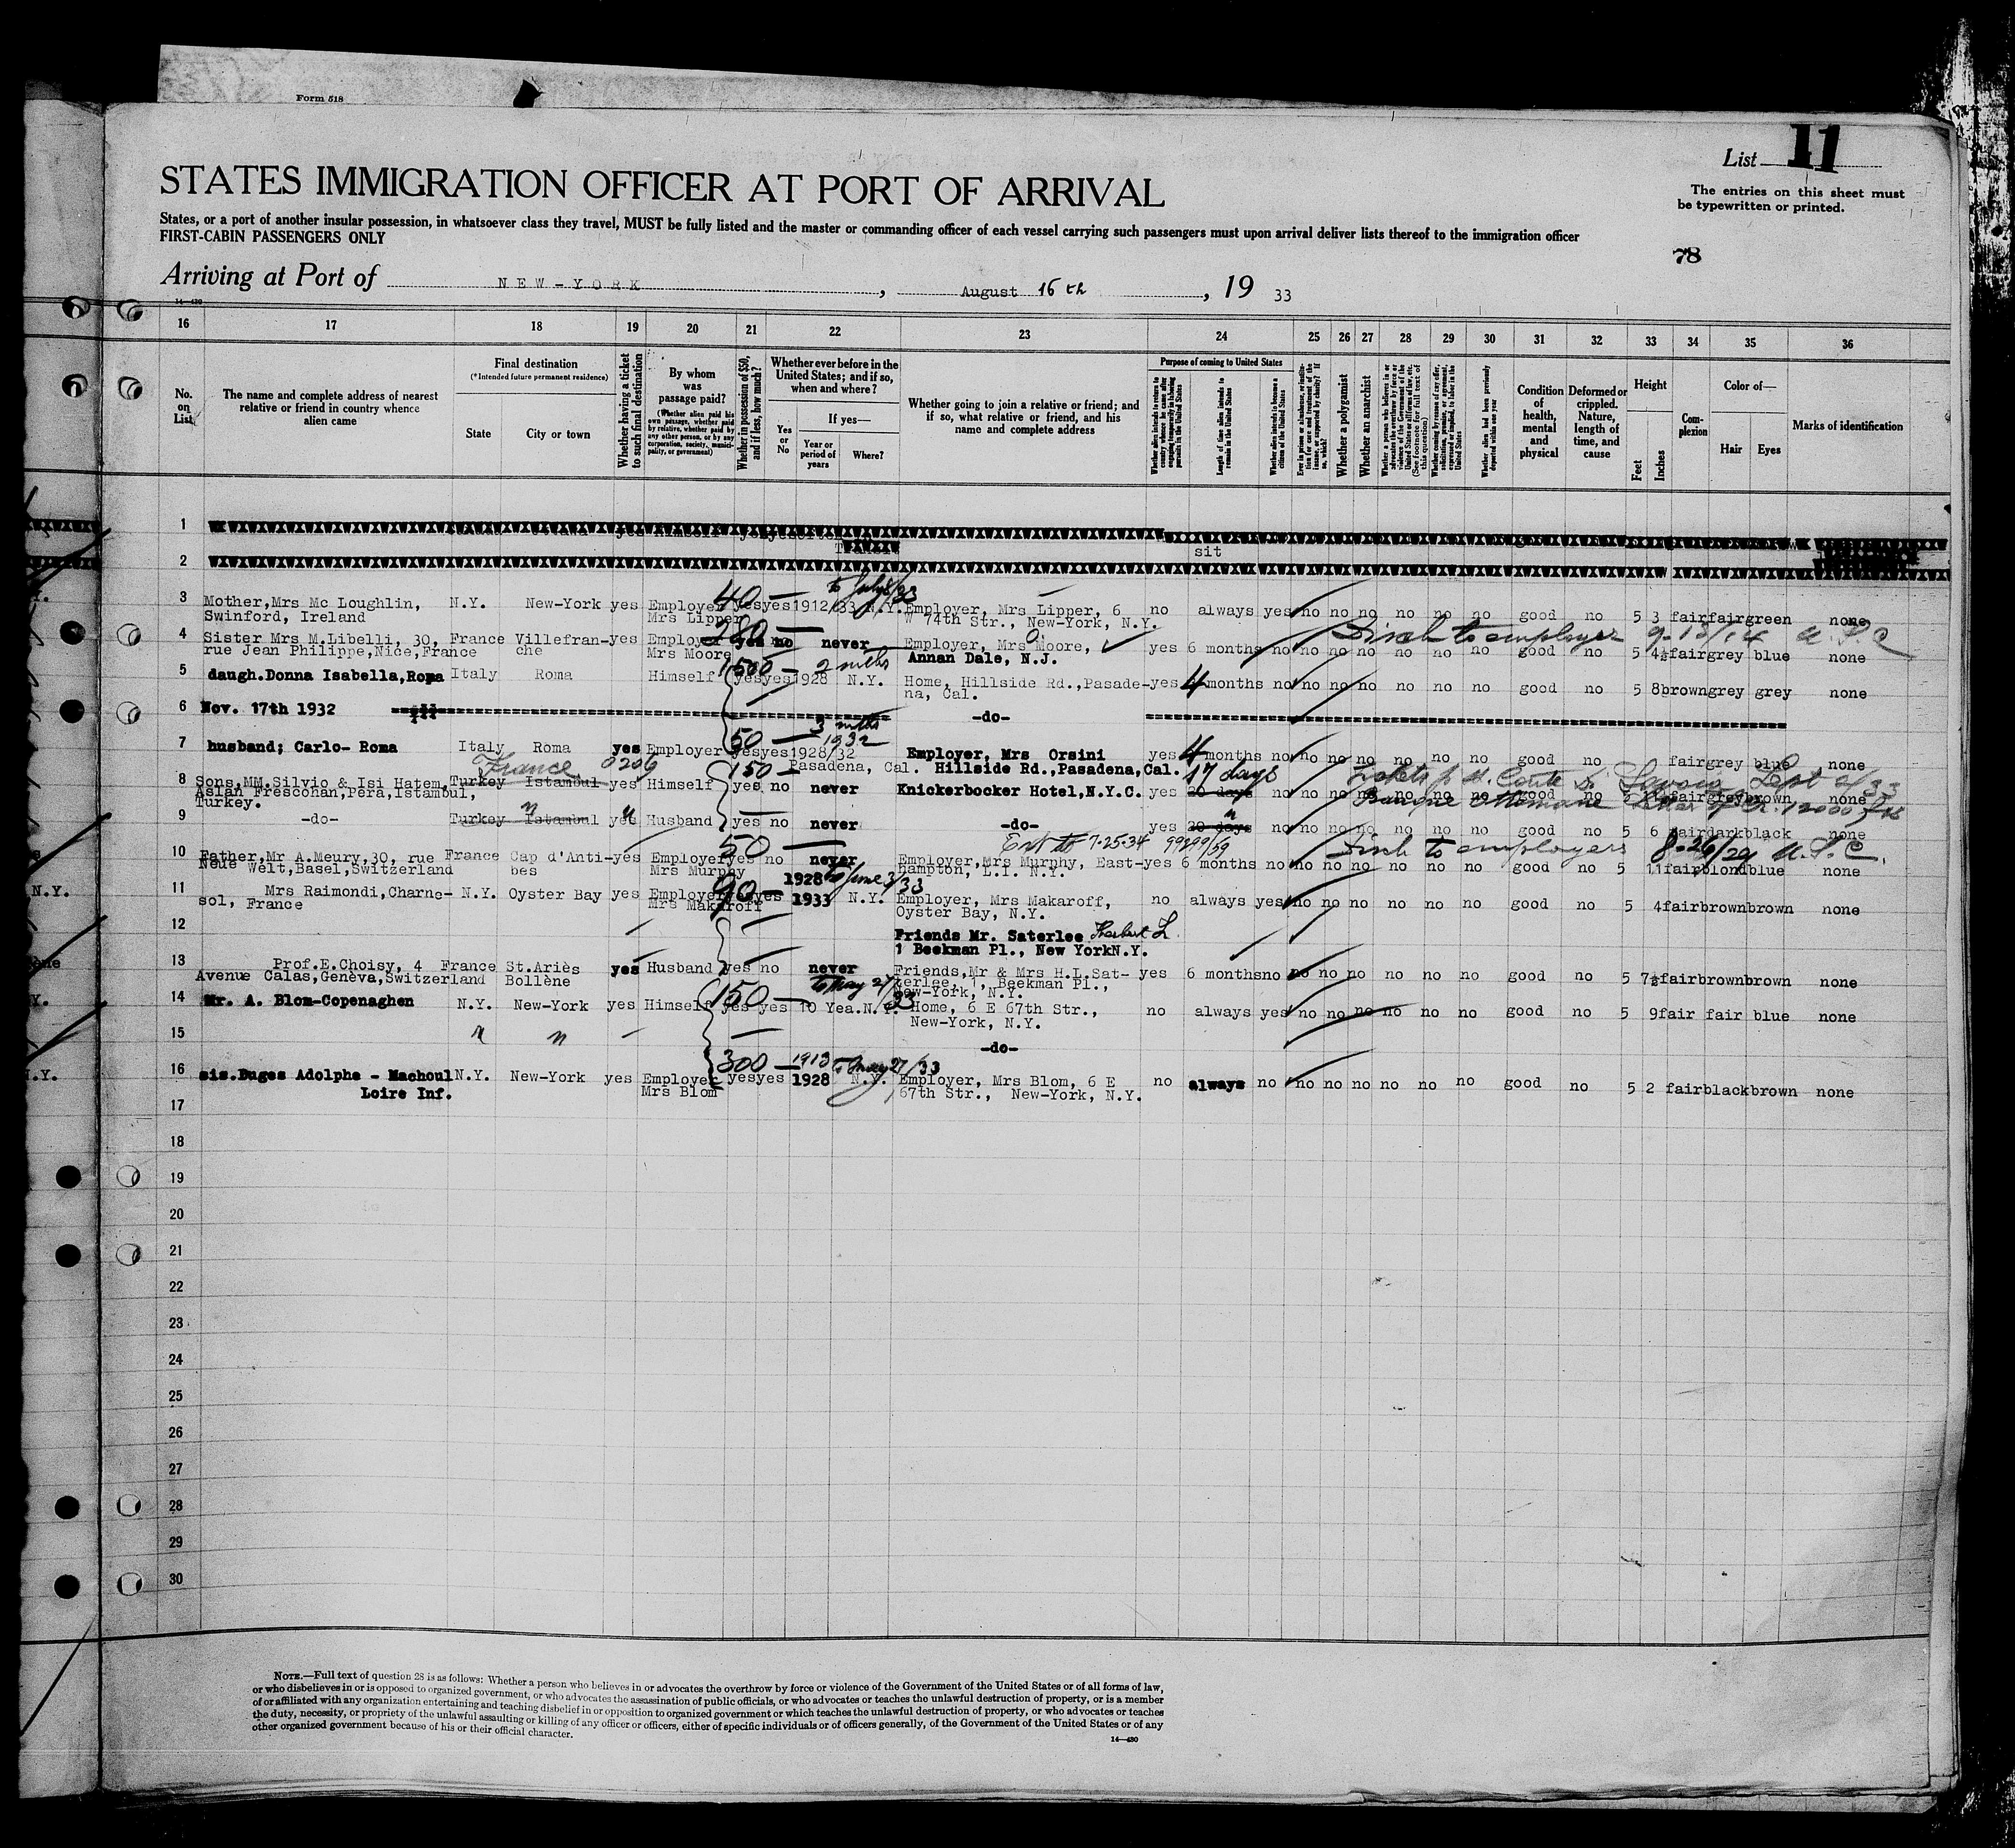 Form 518
List 11
STATES IMMIGRATION OFFICER AT PORT OF ARRIVAL
The entries on this sheet must
be typewritten or printed.
States, or a port of another insular possession, in whatsoever class they travel, MUST be fully listed and the master or commanding officer of each vessel carrying such passengers must upon arrival deliver lists thereof to the immigration officer
FIRST-CABIN PASSENGERS ONLY
78
Arriving at Port of NEW-YORK, August 16 th, 19 33
14—430
16 17 18 19 20 21 22 23 24 25 26 27 28 29 30 31 32 33 34 35 36
No. on List
The name and complete address of nearest relative or friend in country whence alien came
Final destination
(*Intended future permanent residence)
State
City or town
Whether having a ticket to such final destination
By whom was passage paid?
(Whether alien paid his own passage, whether paid by relative, whether paid by any other person, or by any corporation, society, municipality, or government)
Whether in possession of $50, and if less, how much?
Whether ever before in the United States; and if so, when and where?
Yes or No
If yes—
Year or period of years
Where?
Whether going to join a relative or friend; and if so, what relative or friend, and his name and complete address
Purpose of coming to United States
Whether alien intends to return to country whence he came after engaging temporarily in laboring pursuits in the United States
Length of time alien intends to remain in the United States
Whether alien intends to become a citizen of the United States
Whether a polygamist
Whether an anarchist
Whether alien had been previously deported within one year
Condition of health, mental and physical
Deformed or crippled. Nature, length of time, and cause
Height
Feet
Inches
Complexion
Color of—
Hair
Eyes
Marks of identification
1
sit
2
to July 8/33
3 Mother,Mrs Mc Loughlin, N.Y. New-York yes Employer 40— yes yes 1912/33 N.Y. Employer, Mrs Lipper, 6 no always yes no no no no no no good no 5 3 fair fair green none
Swinford, Ireland Mrs Lipper W 74th Str., New-York, N.Y.
4 Sister Mrs M.Libelli, 30, France Villefran- yes Employer yes no never Employer, Mrs Moore, yes 6 months no no no no no no no good no 5 4½ fair grey blue none
rue Jean Philippe,Nice,France che Mrs Moore Annan Dale, N.J.
Disch to employer 9-13/14
5 daugh.Donna Isabella,Roma Italy Roma Himself 1500— yes yes 2 mths 1928 N.Y. Home, Hillside Rd.,Pasade- yes 4 months no no no no no no no good no 5 8 brown grey grey none
na, Cal.
6 Nov. 17th 1932 -do-
3 mths
1932
7 husband; Carlo- Roma Italy Roma yes Employer 50— yes yes 1928/32 Employer, Mrs Orsini yes 4 months no no no no no no no good no fair grey blue none
Pasadena, Cal. Hillside Rd.,Pasadena,Cal.
France 0209 150— 17 days
8 Sons,MM.Silvio & Isi Hatem, Turkey Istambul yes Himself yes no never Knickerbocker Hotel,N.Y.C. yes 20 days no no no no no no no good no fair grey brown none
Aslan Frescohan,Pera,Istambul,
Turkey.
9 -do- Turkey Istambul yes Husband yes no never -do- yes 20 days no no no no no no no good no 5 6 fair dark black none
50— Ext to 7-25-34 99299/59
Disch to employers 8-26/29
10 Father,Mr A.Meury,30, rue France Cap d'Anti- yes Employer yes no never Employer,Mrs Murphy, East- yes 6 months no no no no no no no good no 5 11 fair blond blue none
Neue Welt,Basel,Switzerland bes Mrs Murphy hampton, L.I. N.Y.
1928 to June 3/33
11 Mrs Raimondi,Charne- N.Y. Oyster Bay yes Employer 90— yes 1933 N.Y. Employer, Mrs Makaroff, no always yes no no no no no no good no 5 4 fair brown brown none
sol, France Mrs Makaroff Oyster Bay, N.Y.
12 Friends Mr. Saterlee Herbert L.
1 Beekman Pl., New York N.Y.
13 Prof.E.Choisy, 4 France St.Ariès yes Husband yes no never Friends,Mr & Mrs H.L.Sat- yes 6 months no no no no no no no good no 5 7½ fair brown brown none
Avenue Calas,Genèva,Switzerland Bollène terlee, 1, Beekman Pl.,
New-York, N.Y.
to May 27/33
14 Mr. A. Blom-Copenaghen N.Y. New-York yes Himself 150— yes yes 10 Yea. N.Y. Home, 6 E 67th Str., no always yes no no no no no no good no 5 9 fair fair blue none
New-York, N.Y.
15 " " -do-
300— 1913 to May 27/33
16 sis.Duges Adolphe - Machoul N.Y. New-York yes Employer yes yes 1928 N.Y. Employer, Mrs Blom, 6 E no always no no no no no no no good no 5 2 fair black brown none
Loire Inf. Mrs Blom 67th Str., New-York, N.Y.
17
18
19
20
21
22
23
24
25
26
27
28
29
30
NOTE.—Full text of question 28 is as follows: Whether a person who believes in or advocates the overthrow by force or violence of the Government of the United States or of all forms of law,
or who disbelieves in or is opposed to organized government, or who advocates the assassination of public officials, or who advocates or teaches the unlawful destruction of property, or is a member
of or affiliated with any organization entertaining and teaching disbelief in or opposition to organized government or which teaches the unlawful destruction of property, or who advocates or teaches
the duty, necessity, or propriety of the unlawful assaulting or killing of any officer or officers, either of specific individuals or of officers generally, of the Government of the United States or of any
other organized government because of his or their official character.
14—430